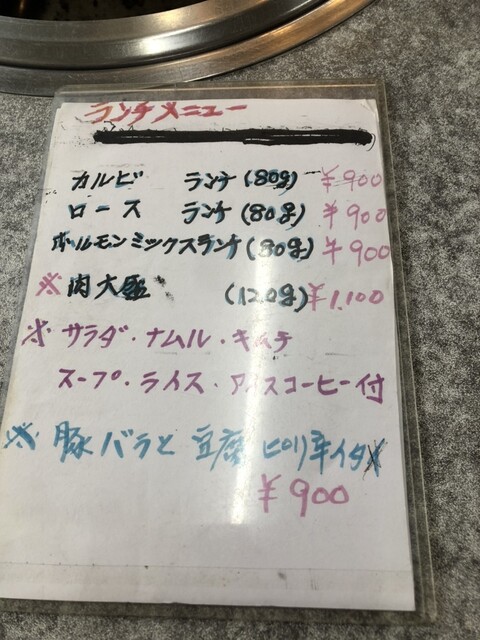 ランチメニュー
カルビ ランチ (80g) ¥900
ロース ランチ (80g) ¥900
ホルモンミックスランチ (80g) ¥900
※ 肉大盛 (120g) ¥1,100
※ サラダ・ナムル・キムチ
スープ・ライス・アイスコーヒー付
※ 豚バラと豆腐ピリ辛イタメ
¥900